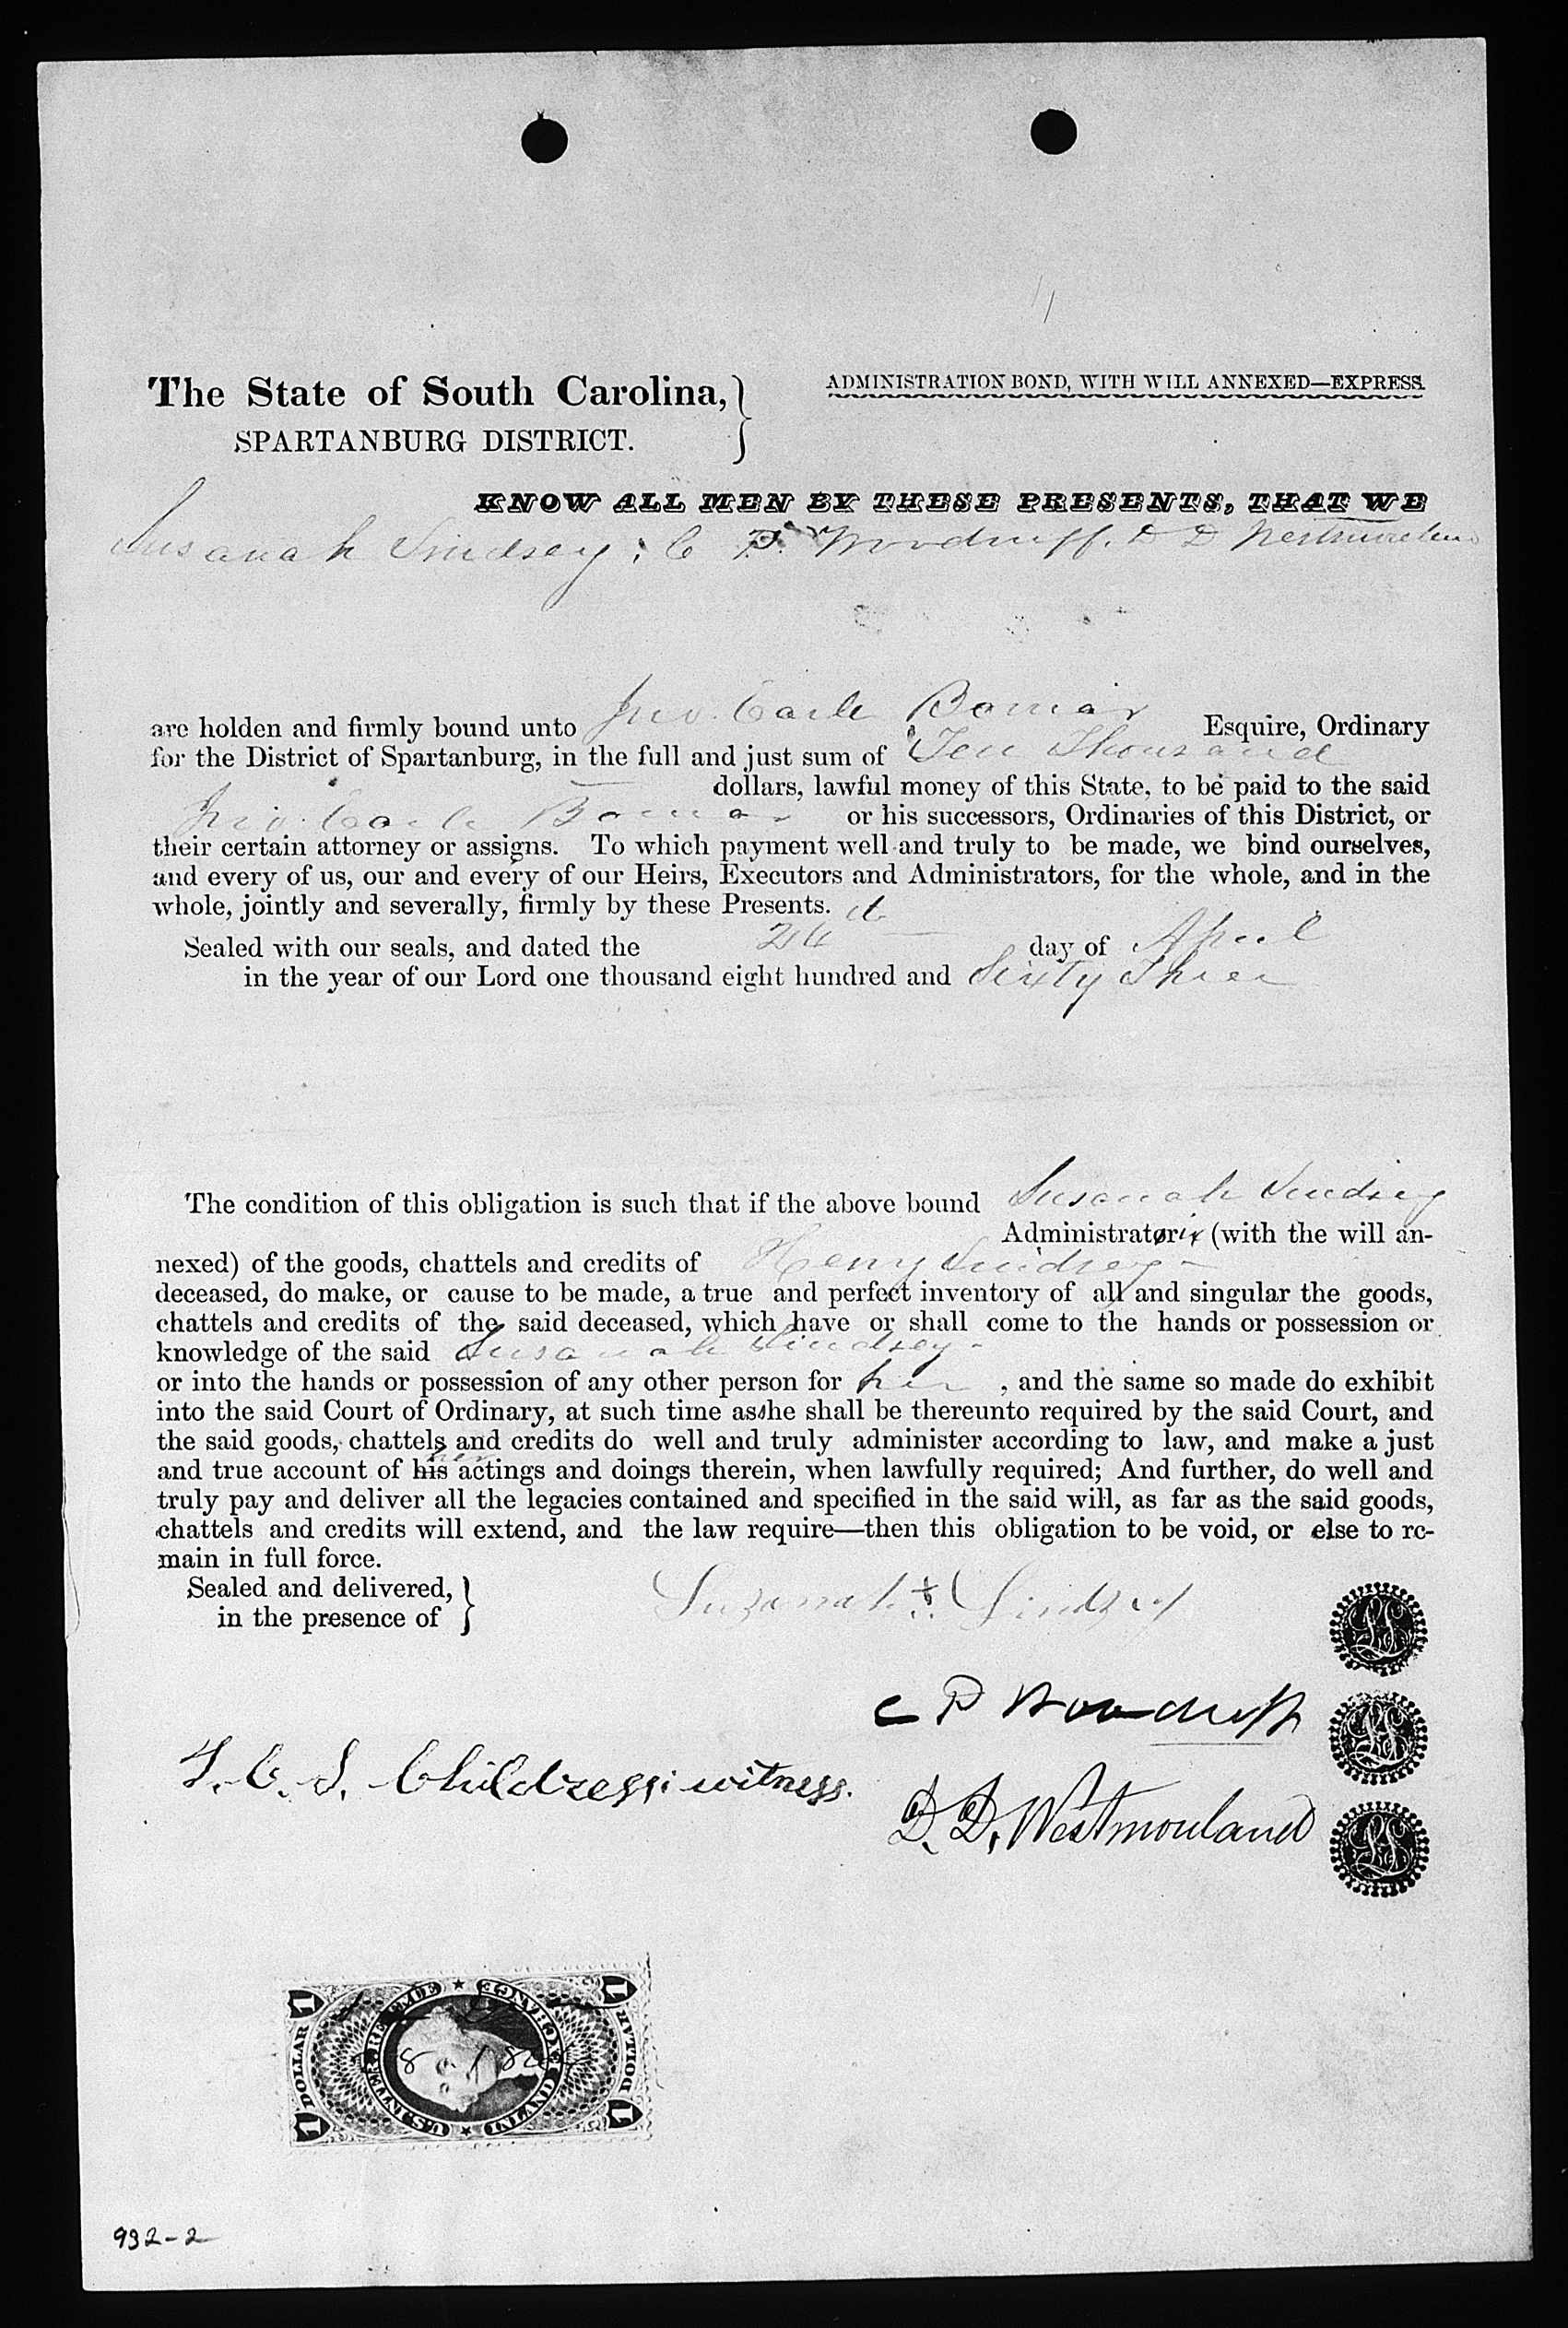 The State of South Carolina,
SPARTANBURG DISTRICT.
ADMINISTRATION BOND, WITH WILL ANNEXED—EXPRESS.
KNOW ALL MEN BY THESE PRESENTS, THAT WE
Susanah Lindsey, C P. Woodruff. D D Westmoreland
are holden and firmly bound unto Jno. Earle Bomar Esquire, Ordinary
for the District of Spartanburg, in the full and just sum of Ten Thousand
dollars, lawful money of this State, to be paid to the said
Jno. Earle Bomar or his successors, Ordinaries of this District, or
their certain attorney or assigns. To which payment well and truly to be made, we bind ourselves,
and every of us, our and every of our Heirs, Executors and Administrators, for the whole, and in the
whole, jointly and severally, firmly by these Presents.
Sealed with our seals, and dated the day of April
in the year of our Lord one thousand eight hundred and Sixty Three
The condition of this obligation is such that if the above bound Susanah Lindsey
Administratorix (with the will an-
nexed) of the goods, chattels and credits of Henry Lindsey
deceased, do make, or cause to be made, a true and perfect inventory of all and singular the goods,
chattels and credits of the said deceased, which have or shall come to the hands or possession or
knowledge of the said Susanah Lindsey
or into the hands or possession of any other person for her , and the same so made do exhibit
into the said Court of Ordinary, at such time as she shall be thereunto required by the said Court, and
the said goods, chattels and credits do well and truly administer according to law, and make a just
her
and true account of his actings and doings therein, when lawfully required; And further, do well and
truly pay and deliver all the legacies contained and specified in the said will, as far as the said goods,
chattels and credits will extend, and the law require—then this obligation to be void, or else to re-
main in full force.
Sealed and delivered,
in the presence of
Suzannah + Lindsey
C P Woodruff
T. C. S. Childress: witness.
D. D. Westmorland
LS
LS
LS
U.S. INTER. REVENUE
INLAND EXCHANGE
1 DOLLAR 1
1 DOLLAR 1
932-2